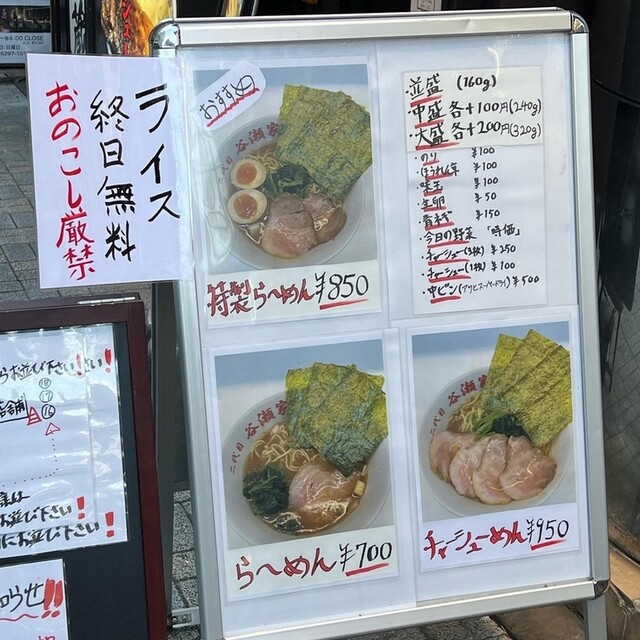 ライス
終日無料
おのこし厳禁
おすすめ
二代目 谷瀬家
特製らーめん ¥850
・並盛 (160g)
・中盛 各+100円(240g)
・大盛 各+200円(320g)
・のり ¥100
・ほうれん草 ¥100
・味玉 ¥100
・生卵 ¥50
・青ネギ ¥150
・今日の野菜 「時価」
・チャーシュー(3枚) ¥250
・チャーシュー(1枚) ¥100
・中ビン(アサヒスーパードライ) ¥500
二代目 谷瀬家
らーめん ¥700
二代目 谷瀬家
チャーシューめん ¥950
お並び下さい!
⑱
⑰
⑯
店舗
お並び下さい!
にお並び下さい!
らせ!!